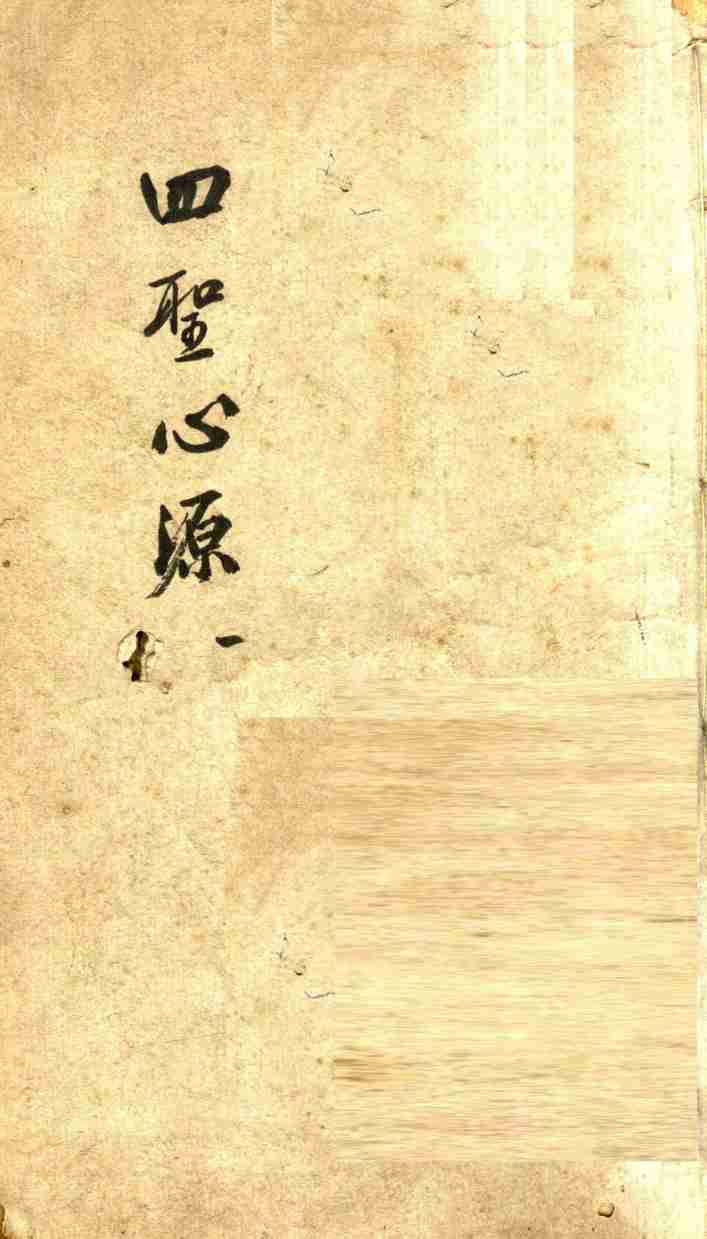 四聖心源
一